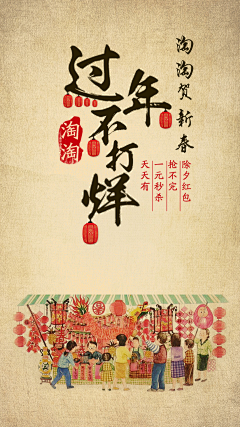 淘淘贺新春
过年不打烊
淘淘
除夕红包
抢不完
一元秒杀
天天有